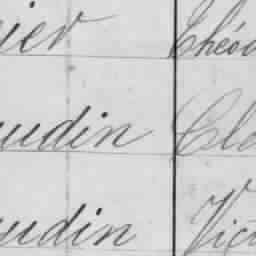 ier Théo
udin Cla
udin Vict